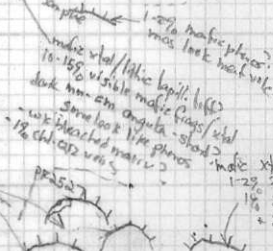 sample
1-2% mafic phnos?
mas look meaf vole
mafic xtal/lithic lapilli tuff?
10-15% visible mafic frags/xtal
dark mm-cm angular - shard?
some look like phnos
- wk bleached matrix?
- 1% chl-
mafic xt
1-2%
1%